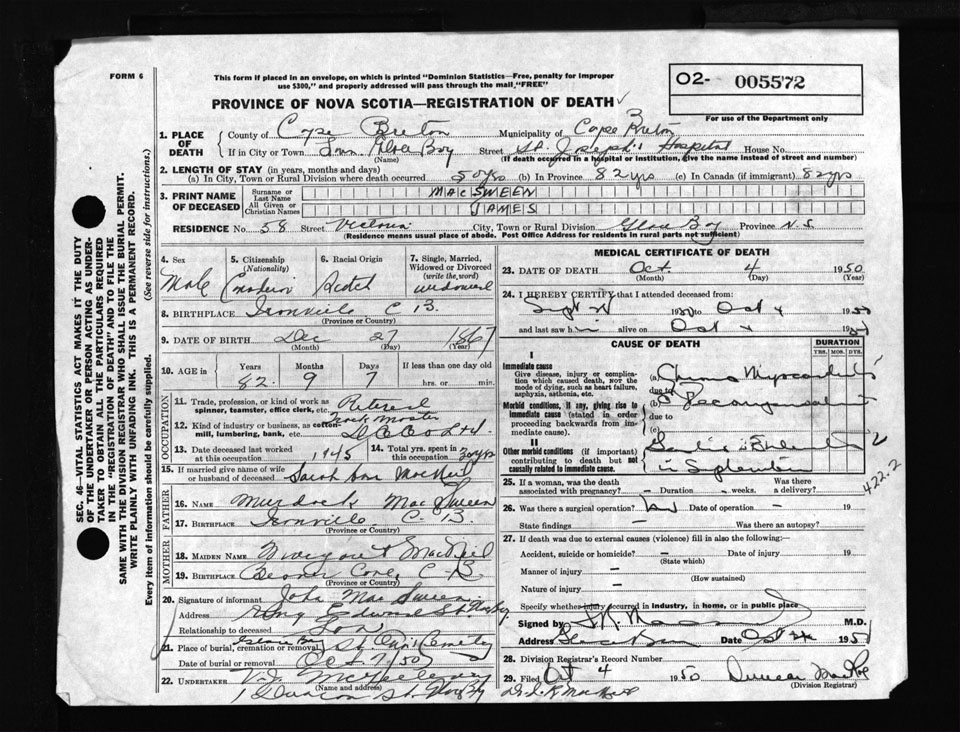 FORM 6
This form if placed in an envelope, on which is printed "Dominion Statistics—Free, penalty for improper
use $300," and properly addressed will pass through the mail, "FREE"
O2- 005572
For use of the Department only
PROVINCE OF NOVA SCOTIA—REGISTRATION OF DEATH
1. PLACE OF DEATH
County of Cape Breton Municipality of Cape Breton
If in City or Town Town Glace Bay Street St. Joseph's Hospital House No.
(Name) (If death occurred in a hospital or institution, give the name instead of street and number)
2. LENGTH OF STAY (in years, months and days)
(a) In City, Town or Rural Division where death occurred 50 yrs (b) In Province 82 yrs (c) In Canada (if immigrant) 82 yrs
3. PRINT NAME OF DECEASED
Surname or Last Name MACSWEEN
All Given or Christian Names JAMES
RESIDENCE No. 58 Street Victoria City, Town or Rural Division Glace Bay Province N.S.
(Residence means usual place of abode. Post Office Address for residents in rural parts not sufficient)
4. Sex Male
5. Citizenship (Nationality) Canadian
6. Racial Origin Scotch
7. Single, Married, Widowed or Divorced (write the word) widowed
8. BIRTHPLACE Ironville C B.
(Province or Country)
9. DATE OF BIRTH Dec 27 1867
(Month) (Day) (Year)
10. AGE in Years 82 Months 9 Days 7 If less than one day old
hrs. or min.
OCCUPATION
11. Trade, profession, or kind of work as spinner, teamster, office clerk, etc. Retired
12. Kind of industry or business, as cotton-mill, lumbering, bank, etc.
13. Date deceased last worked at this occupation 1945
14. Total yrs spent in this occupation 30 yrs
15. If married give name of wife or husband of deceased Sarah Ann MacNeil
FATHER
16. NAME Murdoch MacSween
17. BIRTHPLACE Ironville C. B.
(Province or Country)
MOTHER
18. MAIDEN NAME Margaret MacNeil
19. BIRTHPLACE Beaver Cove, C B
(Province or Country)
20. Signature of informant John MacSween
Address King Edward St. Glace Bay
Relationship to deceased Son
21. Place of burial, cremation or removal Glace Bay
Date of burial or removal Oct 7, 50
22. UNDERTAKER V.J.
(Name and address) St. Glace Bay
MEDICAL CERTIFICATE OF DEATH
23. DATE OF DEATH Oct. 4 1950
(Month) (Day)
24. I HEREBY CERTIFY that I attended deceased from:
Sept 1950 to Oct 4 1950
and last saw him alive on Oct 4 1950
CAUSE OF DEATH DURATION
YRS. MOS. DYS.
I
Immediate cause
Give disease, injury or complication which caused death, NOT the mode of dying, such as heart failure, asphyxia, asthenia, etc.
(a) Chronic Myocarditis
due to
Morbid conditions, if any, giving rise to immediate cause (stated in order proceeding backwards from immediate cause).
(b) Decompensation
due to
II
Other morbid conditions (if important) contributing to death but not causally related to immediate cause.
in September
422.2
25. If a woman, was the death associated with pregnancy? – Duration – weeks. Was there a delivery?
26. Was there a surgical operation? No Date of operation – 19
State findings – Was there an autopsy?
27. If death was due to external causes (violence) fill in also the following:—
Accident, suicide or homicide? – Date of injury 19
(State which)
Manner of injury –
(How sustained)
Nature of injury –
Specify whether injury occurred in industry, in home, or in public place
Signed by M.D.
Address Glace Bay Date Oct 1950
28. Division Registrar's Record Number
29. Filed Oct 4 1950 Duncan
(Division Registrar)
SEC. 46—VITAL STATISTICS ACT MAKES IT THE DUTY
OF THE UNDERTAKER OR PERSON ACTING AS UNDER-
TAKER TO OBTAIN ALL THE PARTICULARS REQUIRED
IN THE "REGISTRATION OF DEATH" AND TO FILE THE
SAME WITH THE DIVISION REGISTRAR WHO SHALL ISSUE THE BURIAL PERMIT.
WRITE PLAINLY WITH UNFADING INK. THIS IS A PERMANENT RECORD.
Every item of information should be carefully supplied. (See reverse side for instructions.)